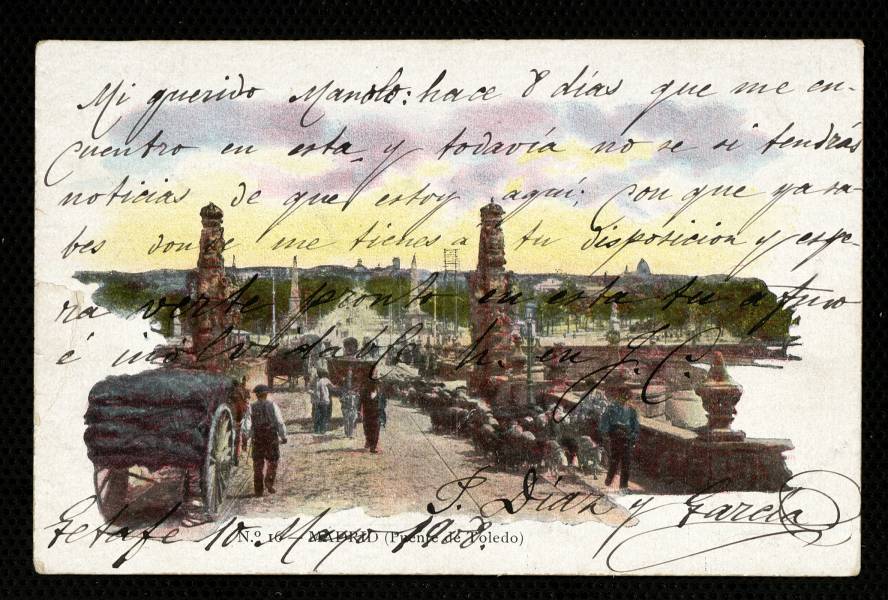 Mi querido Manolo: hace 8 días que me en-
cuentro en esta y todavía no se si tendrás
noticias de que estoy aquí; con que ya sa-
bes donde me tienes a tu disposicion y espe-
ra verte pronto en esta tu afmo
é inolvidable h. en J. C.
P. Díaz y García
Getafe 10 May 1902.
N.º 16 - MADRID (Puente de Toledo)